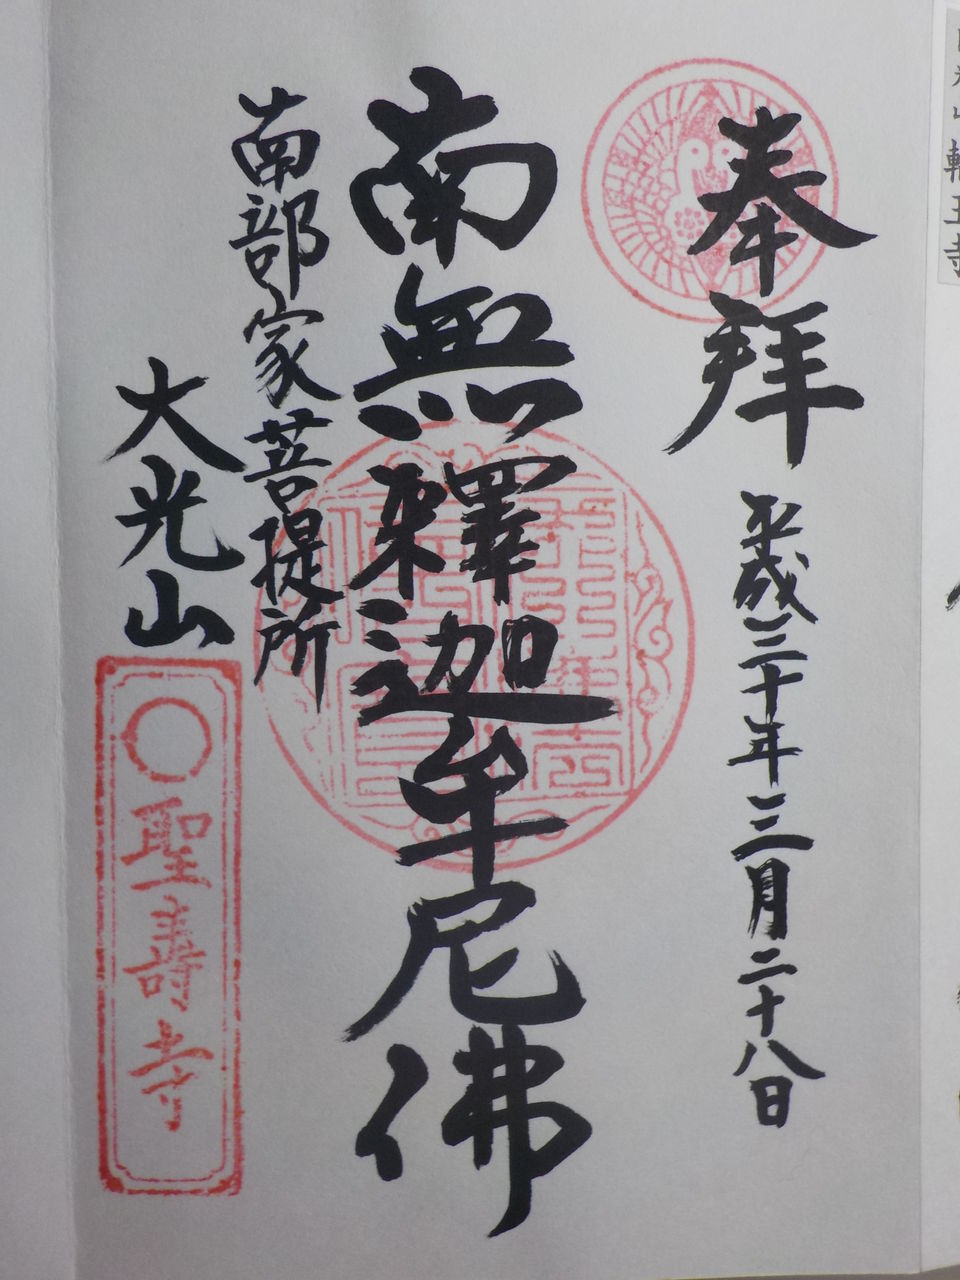 奉拝
平成三十年三月二十八日
南無釋迦牟尼佛
南部家菩提所
大光山
聖壽寺
輪王寺